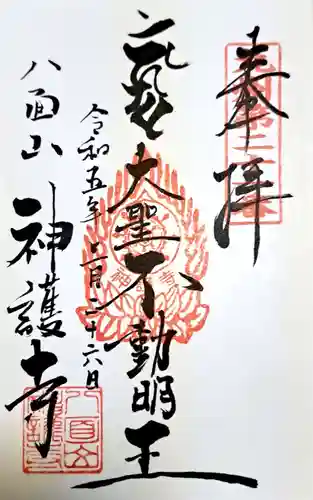 奉拝
大聖不動明王
令和五年三月二十六日
八面山
神護寺